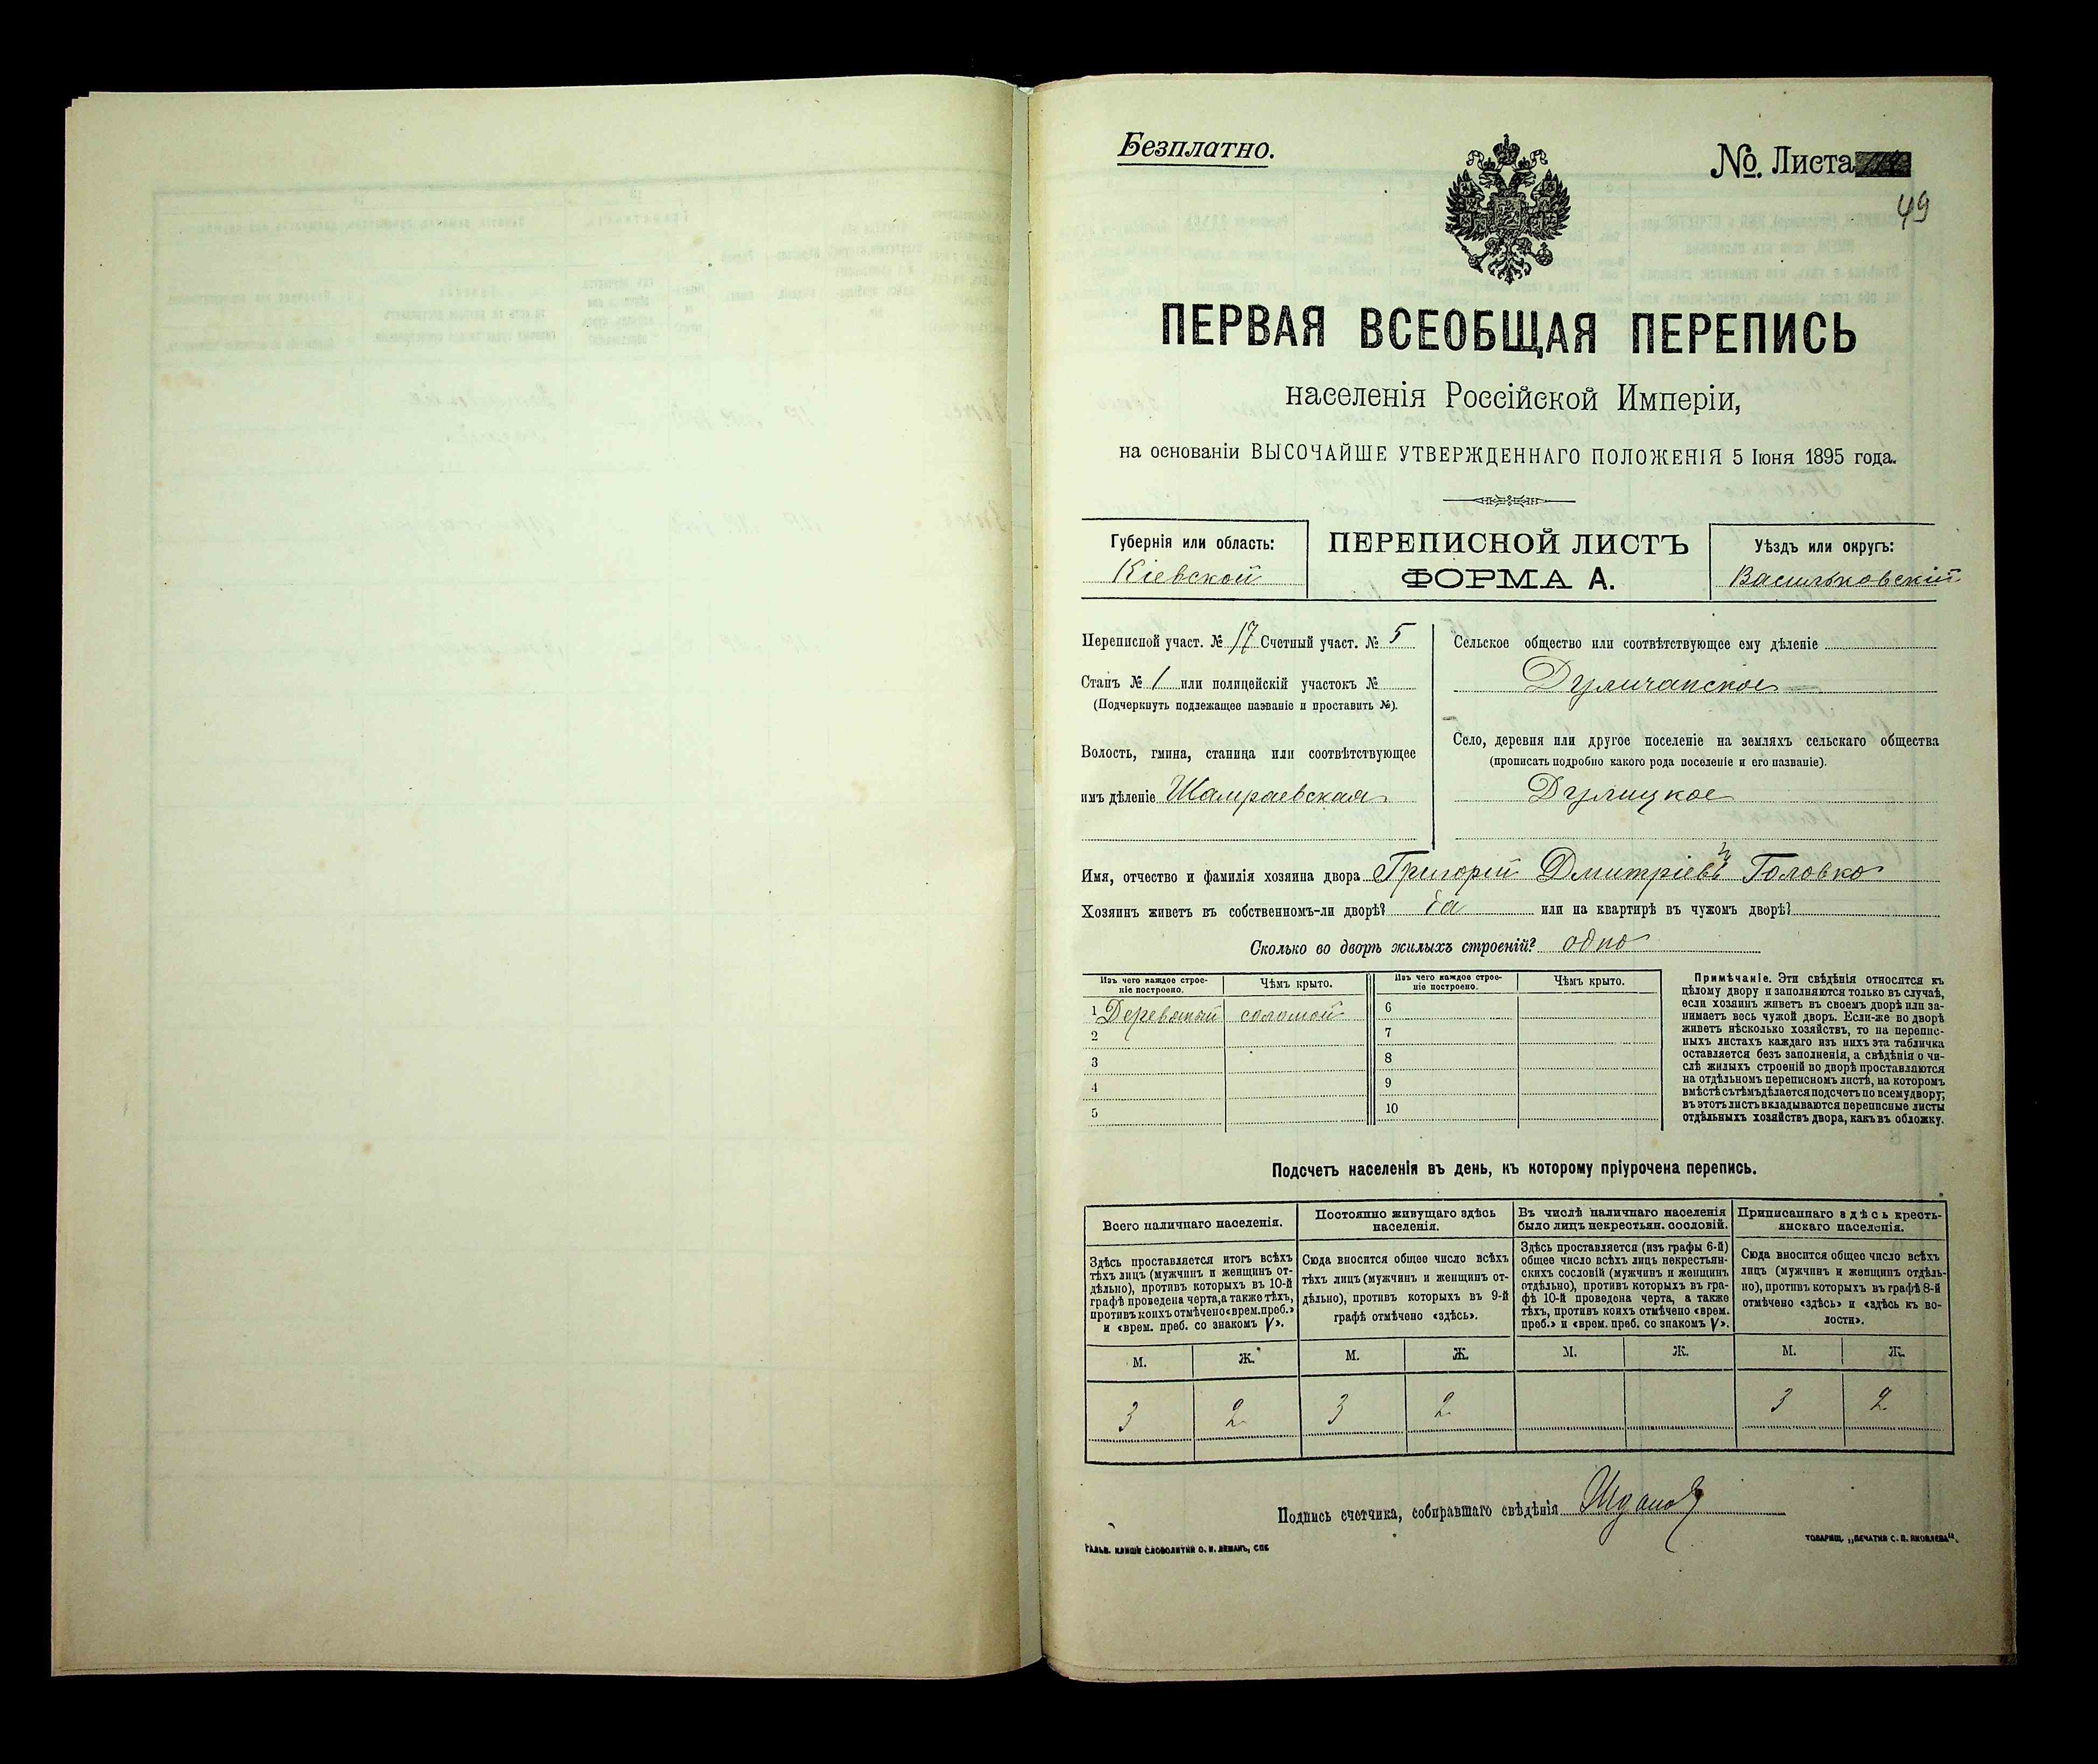 Безплатно.
№ Листа
49
ПЕРВАЯ ВСЕОБЩАЯ ПЕРЕПИСЬ
населенія Россійской Имперіи,
на основаніи ВЫСОЧАЙШЕ УТВЕРЖДЕННАГО ПОЛОЖЕНІЯ 5 Іюня 1895 года.
Губернія или область:
Кіевской
ПЕРЕПИСНОЙ ЛИСТЪ
ФОРМА А.
Уѣздъ или округъ:
Васильковскій
Переписной участ. № 17 Счетный участ. № 5
Станъ № 1 или полицейскій участокъ №
(Подчеркнуть подлежащее названіе и проставить №).
Волость, гмина, станица или соотвѣтствующее
имъ дѣленіе Шамраевская
Сельское общество или соотвѣтствующее ему дѣленіе
Дуличанское
Село, деревня или другое поселеніе на земляхъ сельскаго общества
(прописать подробно какого рода поселеніе и его названіе).
Дулицкое
Имя, отчество и фамилія хозяина двора Григорій Дмитріевъ Головко
Хозяинъ живетъ въ собственномъ-ли дворѣ? да или на квартирѣ въ чужомъ дворѣ?
Сколько во дворѣ жилыхъ строеній? одно
Изъ чего каждое строе-
ніе построено.
Чѣмъ крыто.
Изъ чего каждое строе-
ніе построено.
Чѣмъ крыто.
1 соломой 6
2 7
3 8
4 9
5 10
Примѣчаніе. Эти свѣдѣнія относятся къ
цѣлому двору и заполняются только въ случаѣ,
если хозяинъ живетъ въ своемъ дворѣ или за-
нимаетъ весь чужой дворъ. Если-же во дворѣ
живетъ нѣсколько хозяйствъ, то на перепис-
ныхъ листахъ каждаго изъ нихъ эта табличка
оставляется безъ заполненія, а свѣдѣнія о чи-
слѣ жилыхъ строеній во дворѣ проставляются
на отдѣльномъ переписномъ листѣ, на которомъ
вмѣстѣ съ тѣмъ дѣлается подсчетъ по всему двору;
въ этотъ листъ вкладываются переписные листы
отдѣльныхъ хозяйствъ двора, какъ въ обложку.
Подсчетъ населенія въ день, къ которому пріурочена перепись.
Всего наличнаго населенія.
Здѣсь проставляется итогъ всѣхъ
тѣхъ лицъ (мужчинъ и женщинъ от-
дѣльно), противъ которыхъ въ 10-й
графѣ проведена черта, а также тѣхъ,
противъ коихъ отмѣчено «врем. преб.»
и «врем. преб. со знакомъ V».
Постоянно живущаго здѣсь
населенія.
Сюда вносится общее число всѣхъ
тѣхъ лицъ (мужчинъ и женщинъ от-
дѣльно), противъ которыхъ въ 9-й
графѣ отмѣчено «здѣсь».
Въ числѣ наличнаго населенія
было лицъ некрестьян. сословій.
Здѣсь проставляется (изъ графы 6-й)
общее число всѣхъ лицъ некрестьян-
скихъ сословій (мужчинъ и женщинъ
отдѣльно), противъ которыхъ въ гра-
фѣ 10-й проведена черта, а также
тѣхъ, противъ коихъ отмѣчено «врем.
преб.» и «врем. преб. со знакомъ V».
Приписаннаго здѣсь кресть-
янскаго населенія.
Сюда вносится общее число всѣхъ
лицъ (мужчинъ и женщинъ отдѣль-
но), противъ которыхъ въ графѣ 8-й
отмѣчено «здѣсь» и «здѣсь къ во-
лости».
М. Ж. М. Ж. М. Ж. М. Ж.
3 2 3 2 3 2
Подпись счетчика, собиравшаго свѣдѣнія
ГАЛЬВ. КЛИШЕ СЛОВОЛИТНИ О. И. ЛЕМАНЪ, СПБ
ТОВАРИЩ. „ПЕЧАТНЯ С. П. ЯКОВЛЕВА".